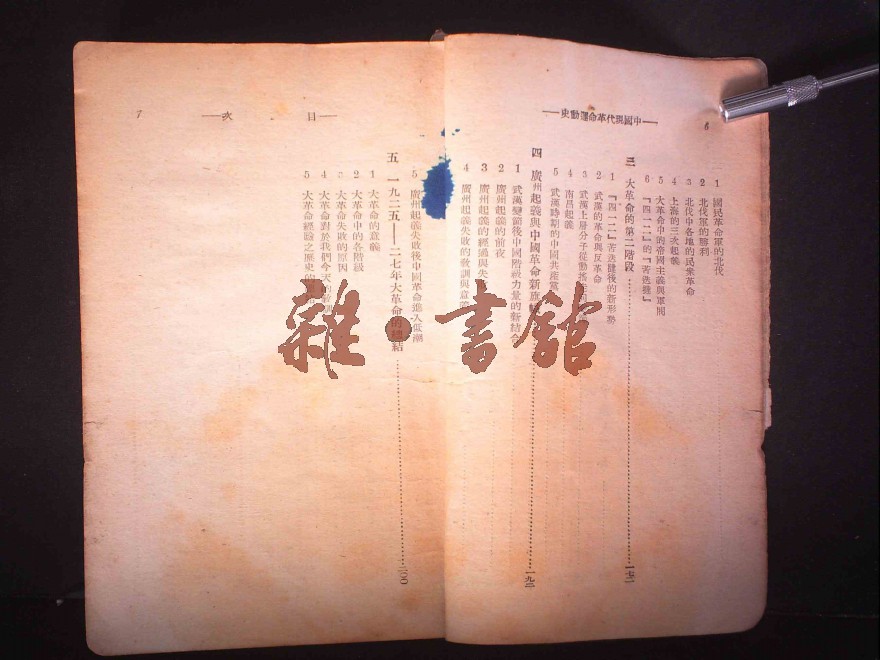 中國現代革命運動史
6
1 國民革命軍的北伐
2 北伐軍的勝利
3 北伐中各地的民衆革命
4 上海的三次起義
5 大革命中的帝國主義與軍閥
6 『四一二』的『苦迭撻』
三 大革命的第二階段 一七二
1 『四一二』苦迭撻後的新形勢
2 武漢的革命與反革命
3 武漢上層分子從動搖
4 南昌起義
5 武漢時期的中國共產黨
四 廣州起義與中國革命新 一九二
1 武漢變節後中國階級力量的新結合
2 廣州起義的前夜
3 廣州起義的經過與失
4 廣州起義失敗的教訓與意義
目次
7
5 廣州起義失敗後中國革命進入低潮
五 一九二五——二七年大革命的總結 二〇〇
1 大革命的意義
2 大革命中的各階級
3 大革命失敗的原因
4 大革命對於我們今天的
5 大革命經驗之歷史的
雜·書館